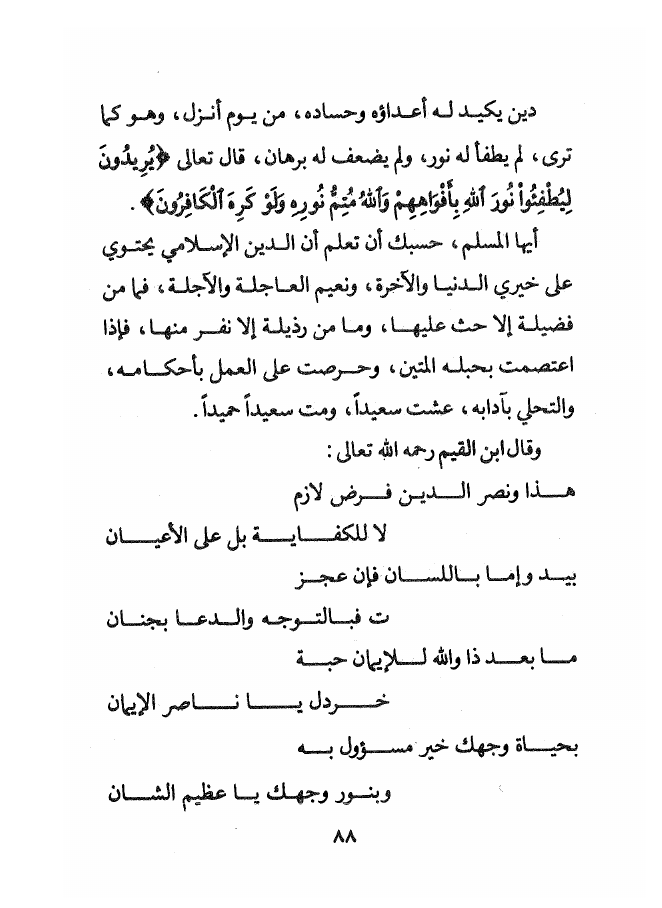 دين يكيد له أعداؤه وحساده، من يوم أنزل، وهو كما
ترى، لم يطفأ له نور، ولم يضعف له برهان، قال تعالى ﴿يُرِيدُونَ
لِيُطْفِئُواْ نُورَ ٱللهِ بِأَفْوَاهِهِمْ وَٱللهُ مُتِمُّ نُورِهِ وَلَوْ كَرِهَ ٱلْكَافِرُونَ﴾.
أيها المسلم، حسبك أن تعلم أن الدين الإسلامي يحتوي
على خيري الدنيا والآخرة، ونعيم العاجلة والآجلة، فما من
فضيلة إلا حث عليها، وما من رذيلة إلا نفر منها، فإذا
اعتصمت بحبله المتين، وحرصت على العمل بأحكامه،
والتحلي بآدابه، عشت سعيداً، ومت سعيداً حميداً.
وقال ابن القيم رحمه الله تعالى:
هذا ونصر الدين فرض لازم
لا للكفاية بل على الأعيان
بيد وإما باللسان فإن عجز
ت فبالتوجه والدعا بجنان
ما بعد ذا والله للإيمان حبة
خردل يا ناصر الإيمان
بحياة وجهك خير مسؤول به
وبنور وجهك يا عظيم الشان
٨٨